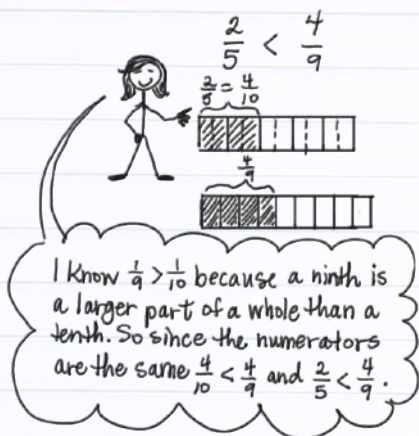 2/5 < 4/9
2/5 = 4/10
4/9
I know 1/9 > 1/10 because a ninth is
a larger part of a whole than a
tenth. So since the numerators
are the same 4/10 < 4/9 and 2/5 < 4/9.